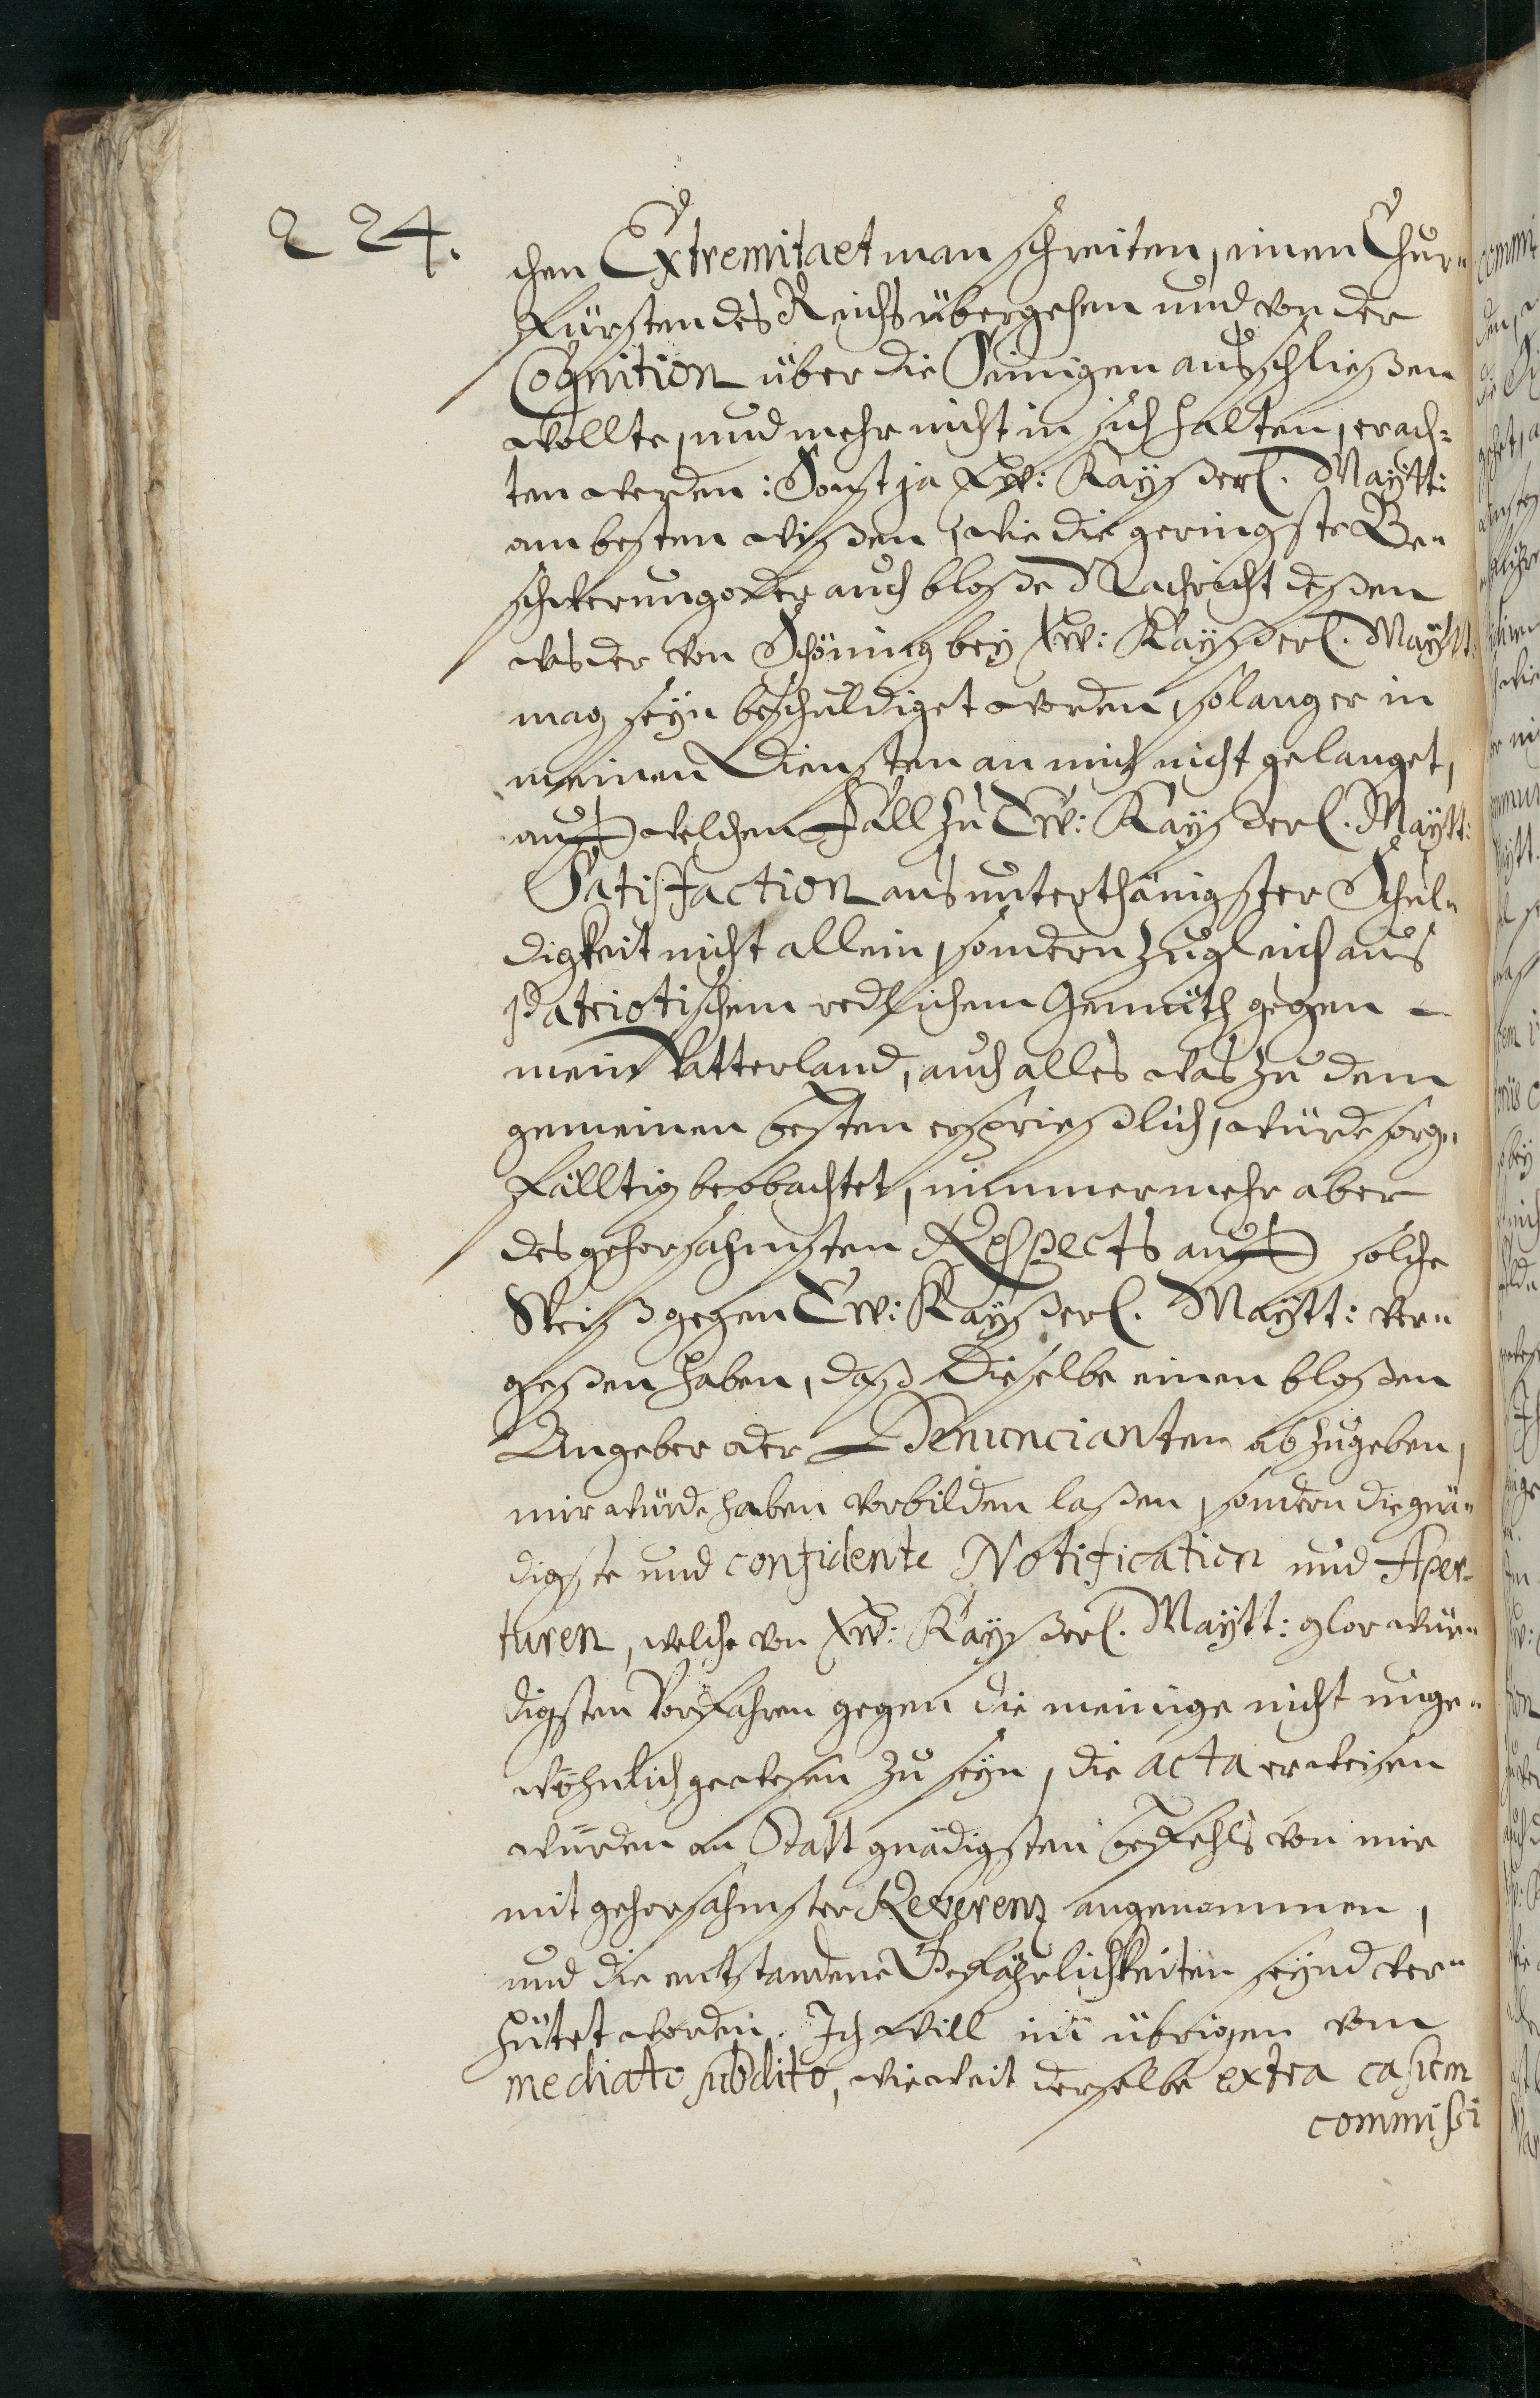 224.
chen Extremitaet man schreiten, einen Chur-
Fürsten des Reichs übergehen und von der
Cognition über die Seinigen ausschließen
wollte, und mehr nicht in sich halten, erach-
ten werden: Sonst ja Ew: Kayßerl. Maytt:
am besten wißen, wie die geringste Be-
schwerung oder auch bloße Nachricht deßen
was der von Schöning bey Ew: Kayßerl. Maytt:
mag seyn beschuldiget worden, solang er in
meinen Diensten an mich nicht gelanget,
auf welchen Fall zu Ew: Kayßerl. Maytt:
Satisfaction aus unterthänigster Schul-
digkeit nicht allein, sondern zugleich aus
Patriotischem redlichem Gemüth gegen
mein Vatterland, auch alles was zu dem
gemeinen besten ersprießlich, würde sorg-
fälltig beobachtet, nimmermehr aber
des gehorsahmsten Respects auf solche
Weiß gegen Ew: Kayßerl. Maytt: ver-
geßen haben, daß Dieselbe einen bloßen
Angeber oder Denuncianten abzugeben,
mir würde haben vorbilden laßen, sondern die gnä-
digste und confidente Notification und Aper-
turen, welche von Ew: Kayßerl. Maytt: glorwür-
digsten Vorfahren gegen die meinige nicht unge-
wöhnlich gewesen zu seyn, die acta erweisen
würden an Statt gnädigsten befehls von mir
mit gehorsahmster Reverenz angenommen,
und die entstandene Gefährlichkeiten seynd ver-
hütet worden. Ich will im übrigen vom
mediato subdito, wie weit derselbe extra casum
commißi